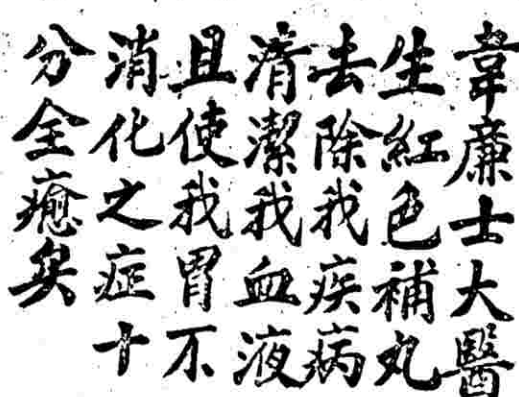 韋廉士大醫
生紅色補丸
去除我疾病
清潔我血液
且使我胃不
消化之症十
分全癒矣